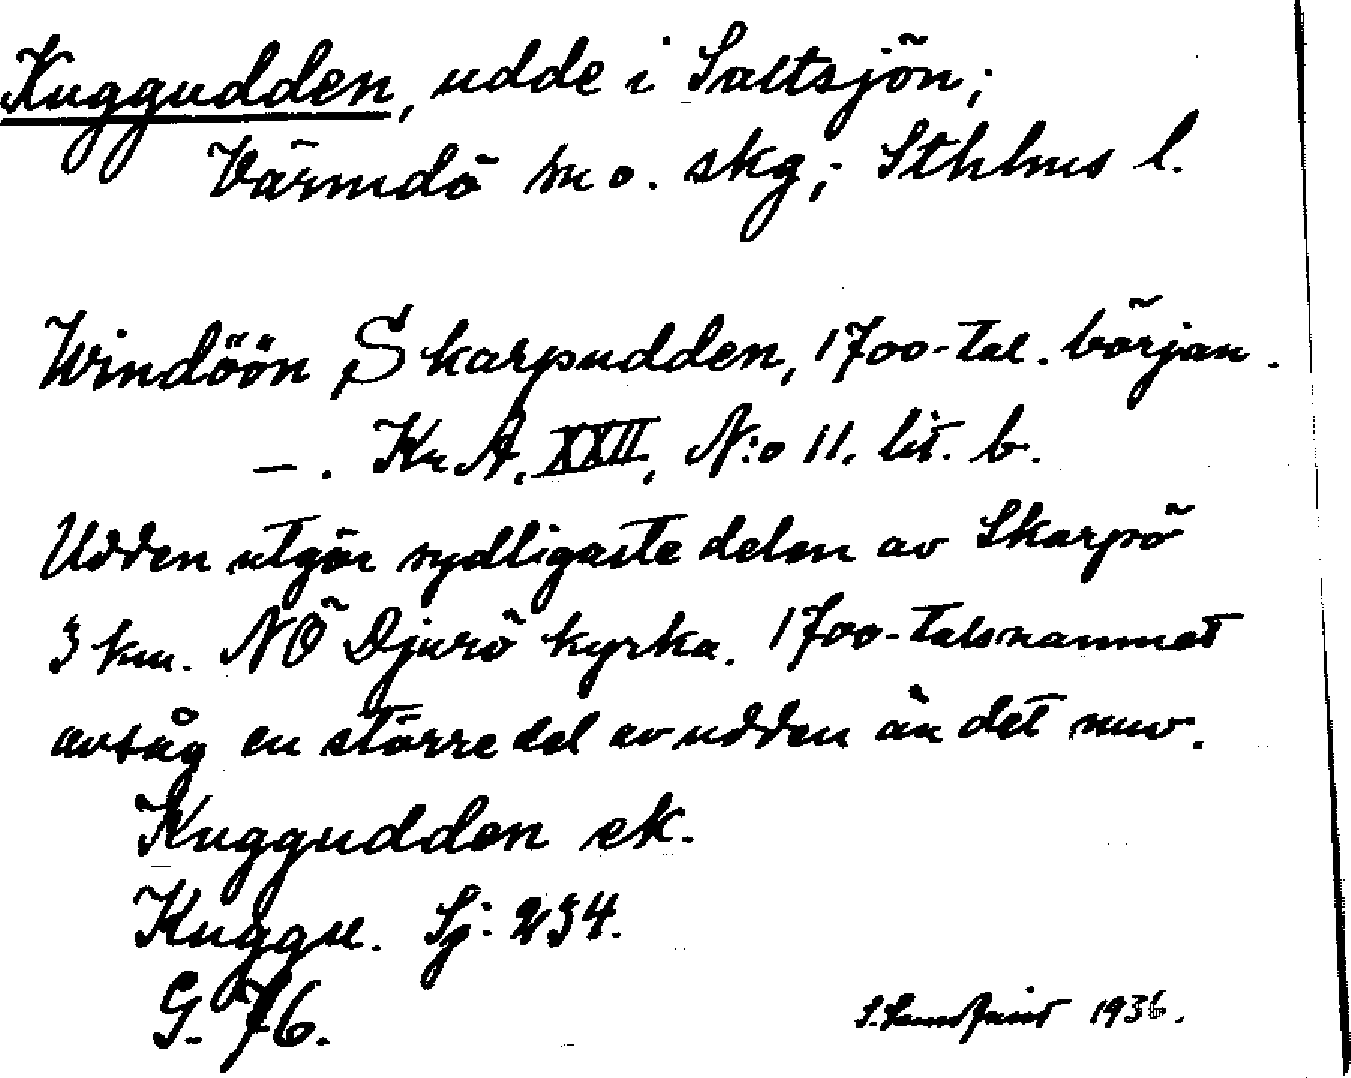 Kuggudden, udde i Saltsjön;
Värmdö m o. skg; Sthlms l.
Windöön, Skarpudden, 1700-tal. början.
—. KrA, XXII, N:o 11. lit. b.
Udden utgör sydligaste delen av Skarpö
3 km. NÖ Djurö kyrka. 1700-talsnamnet
avsåg en större del av udden än det nuv.
Kuggudden ek.
Kuggu. Sj: 234.
G. 76.
1936.